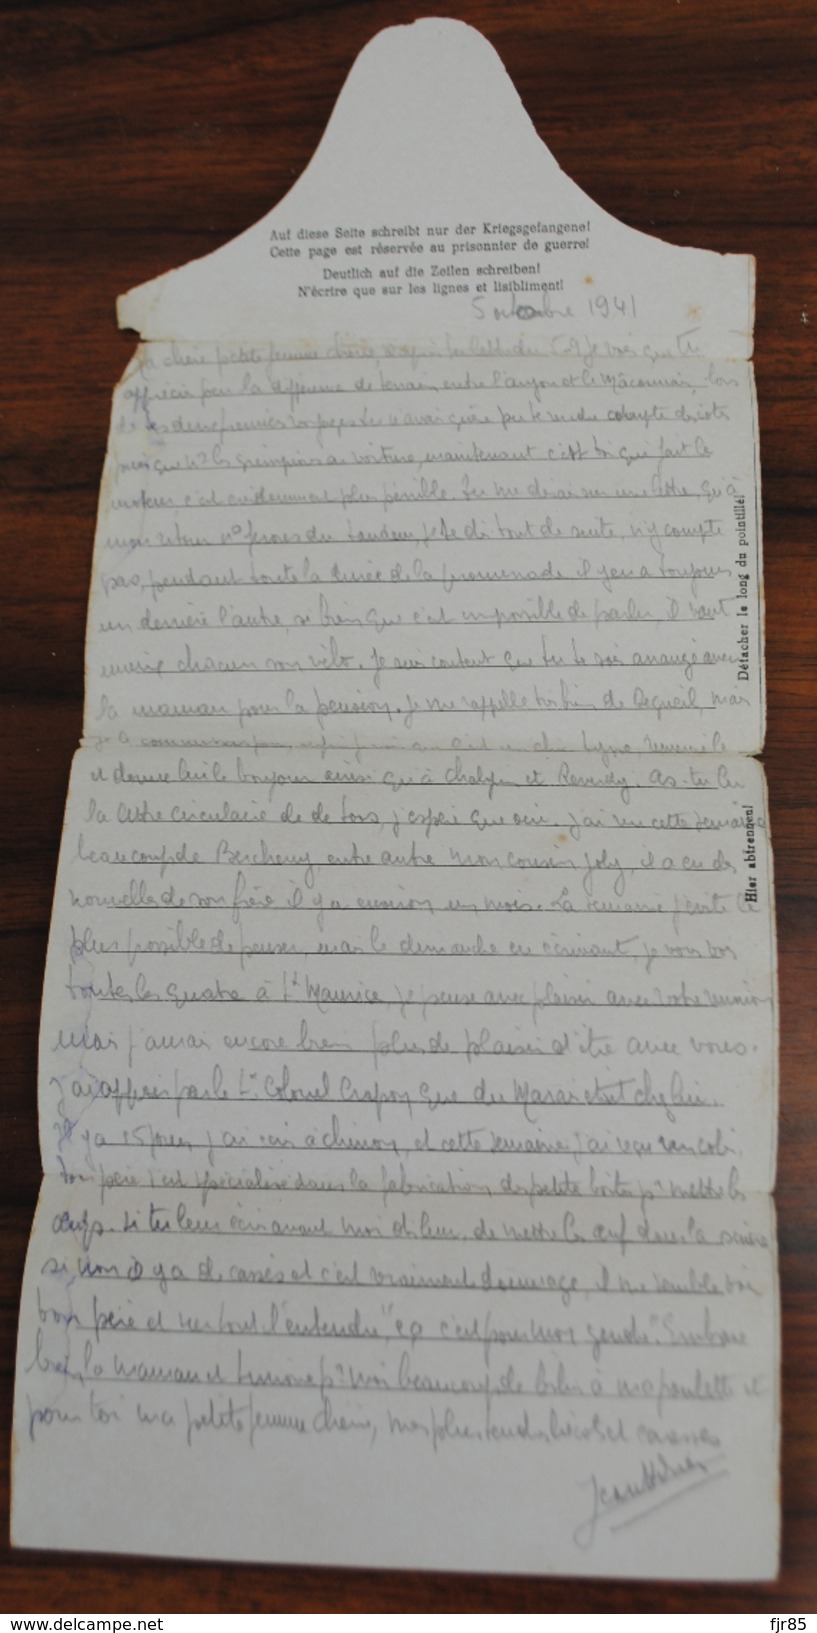 Auf diese Seite schreibt nur der Kriegsgefangene!
Cette page est réservée au prisonnier de guerre!
Deutlich auf die Zeilen schreiben!
N'écrire que sur les lignes et lisiblement!
5 octobre 1941
Ma chère petite femme chérie, lettre du 5-9 je vois que tu
apprécies la différence de terrain entre l'anjou et le Mâconnais, lors
de tes deux premiers voyages tu n'avais guère pu te rendre compte des côtes
puisque ns les grimpions en voiture, maintenant c'est toi qui fait le
moteur, c'est évidemment plus pénible. Tu me disais sur une lettre, qu'à
mon retour ns ferons du tandem, je te dis tout de suite, n'y compte
pas, pendant toute la durée de la promenade il y en a toujours
un derrière l'autre, si bien que c'est impossible de parler, il vaut
mieux chacun son vélo. Je suis content que tu te sois arrangé avec
la maman pour la pension. Je me rappelle très bien de mais
je le
et donne lui le bonjour ainsi qu'à et Reverdy. As-tu lu
la lettre circulaire de de Tars, j'espère que oui. J'ai vu cette semaine
beaucoup de Bercheny, entre autre mon cousin Joly, il a eu des
nouvelles de son frère il y a environ un mois. La semaine j'évite le
plus possible de penser, mais le dimanche en écrivant, je vous vois
toutes les quatre à St Maurice, je pense avec plaisir avec votre réunion
mais j'aurai encore bien plus de plaisir d'être avec vous.
J'ai appris par le Lt Colonel Crapon que du Marais était chez lui.
Il y a 15 jours j'ai écris à chinon, et cette semaine j'ai reçu un colis.
ton père s'est spécialisé dans la fabrication des petites boites pr mettre les
œufs. Si tu leur écris avant moi dis leur, de mettre les œufs dans la sciure
si, non il y a de cassés et c'est vraiment dommage, il me semble voir
ton père et surtout l'entendre, "ça c'est pour mon gendre". Embrasse
bien la Maman et Simone pr moi beaucoup de bibis à ma poulette et
pour toi ma petite femme chérie, mes plus tendres bécots et caresses
Jean
Détacher le long du pointillé!
Hier abtrennen!
www.delcampe.net
fjr85